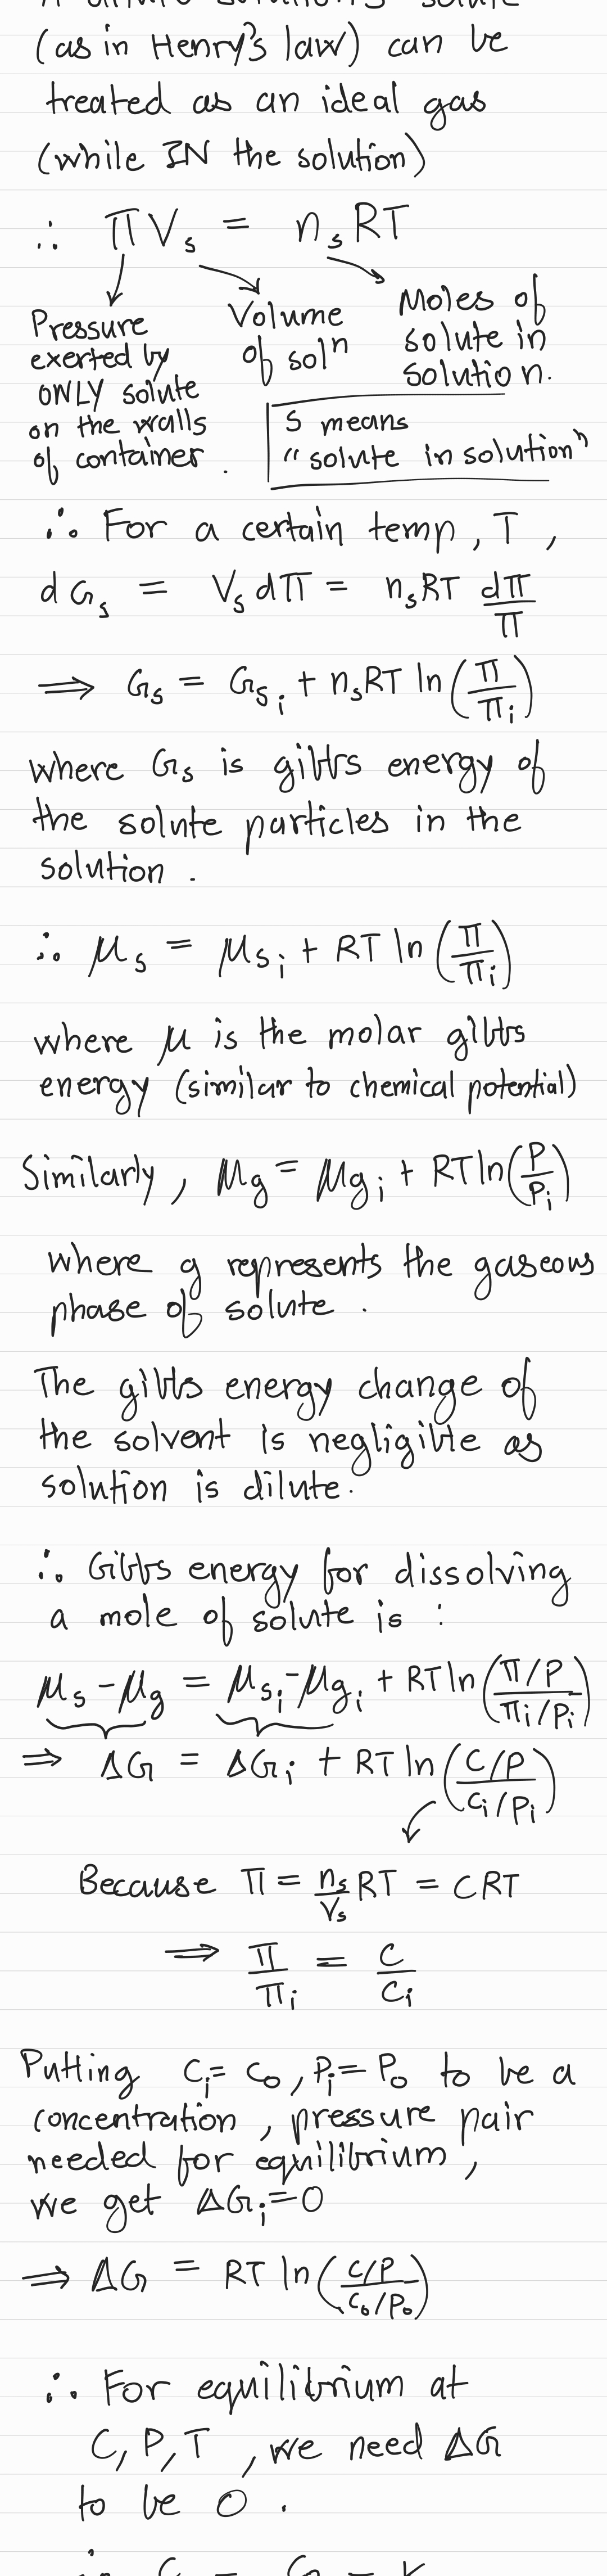 (as in Henry's law) can be
treated as an ideal gas
(while IN the solution)
∴ ΠV_s = n_s RT
Pressure
exerted by
ONLY solute
on the walls
of container.
Volume
of solⁿ
Moles of
solute in
solution.
S means
"solute in solution"
∴ For a certain temp, T,
dG_s = V_s dΠ = n_s RT dΠ/Π
⟹ G_s = G_{s i} + n_s RT ln(Π/Π_i)
where G_s is gibbs energy of
the solute particles in the
solution.
∴ μ_s = μ_{s i} + RT ln(Π/Π_i)
where μ is the molar gibbs
energy (similar to chemical potential)
Similarly, μ_g = μ_{g i} + RT ln(P/P_i)
where g represents the gaseous
phase of solute.
The gibbs energy change of
the solvent is negligible as
solution is dilute.
∴ Gibbs energy for dissolving
a mole of solute is :
μ_s - μ_g = μ_{s i} - μ_{g i} + RT ln((Π/P)/(Π_i/P_i))
⇒ ΔG = ΔG_i + RT ln((C/P)/(C_i/P_i))
Because Π = n_s/V_s RT = CRT
⟹ Π/Π_i = C/C_i
Putting C_i = C_0, P_i = P_0 to be a
concentration, pressure pair
needed for equilibrium,
we get ΔG_i = 0
⟹ ΔG = RT ln((C/P)/(C_0/P_0))
∴ For equilibrium at
C, P, T, we need ΔG
to be 0.